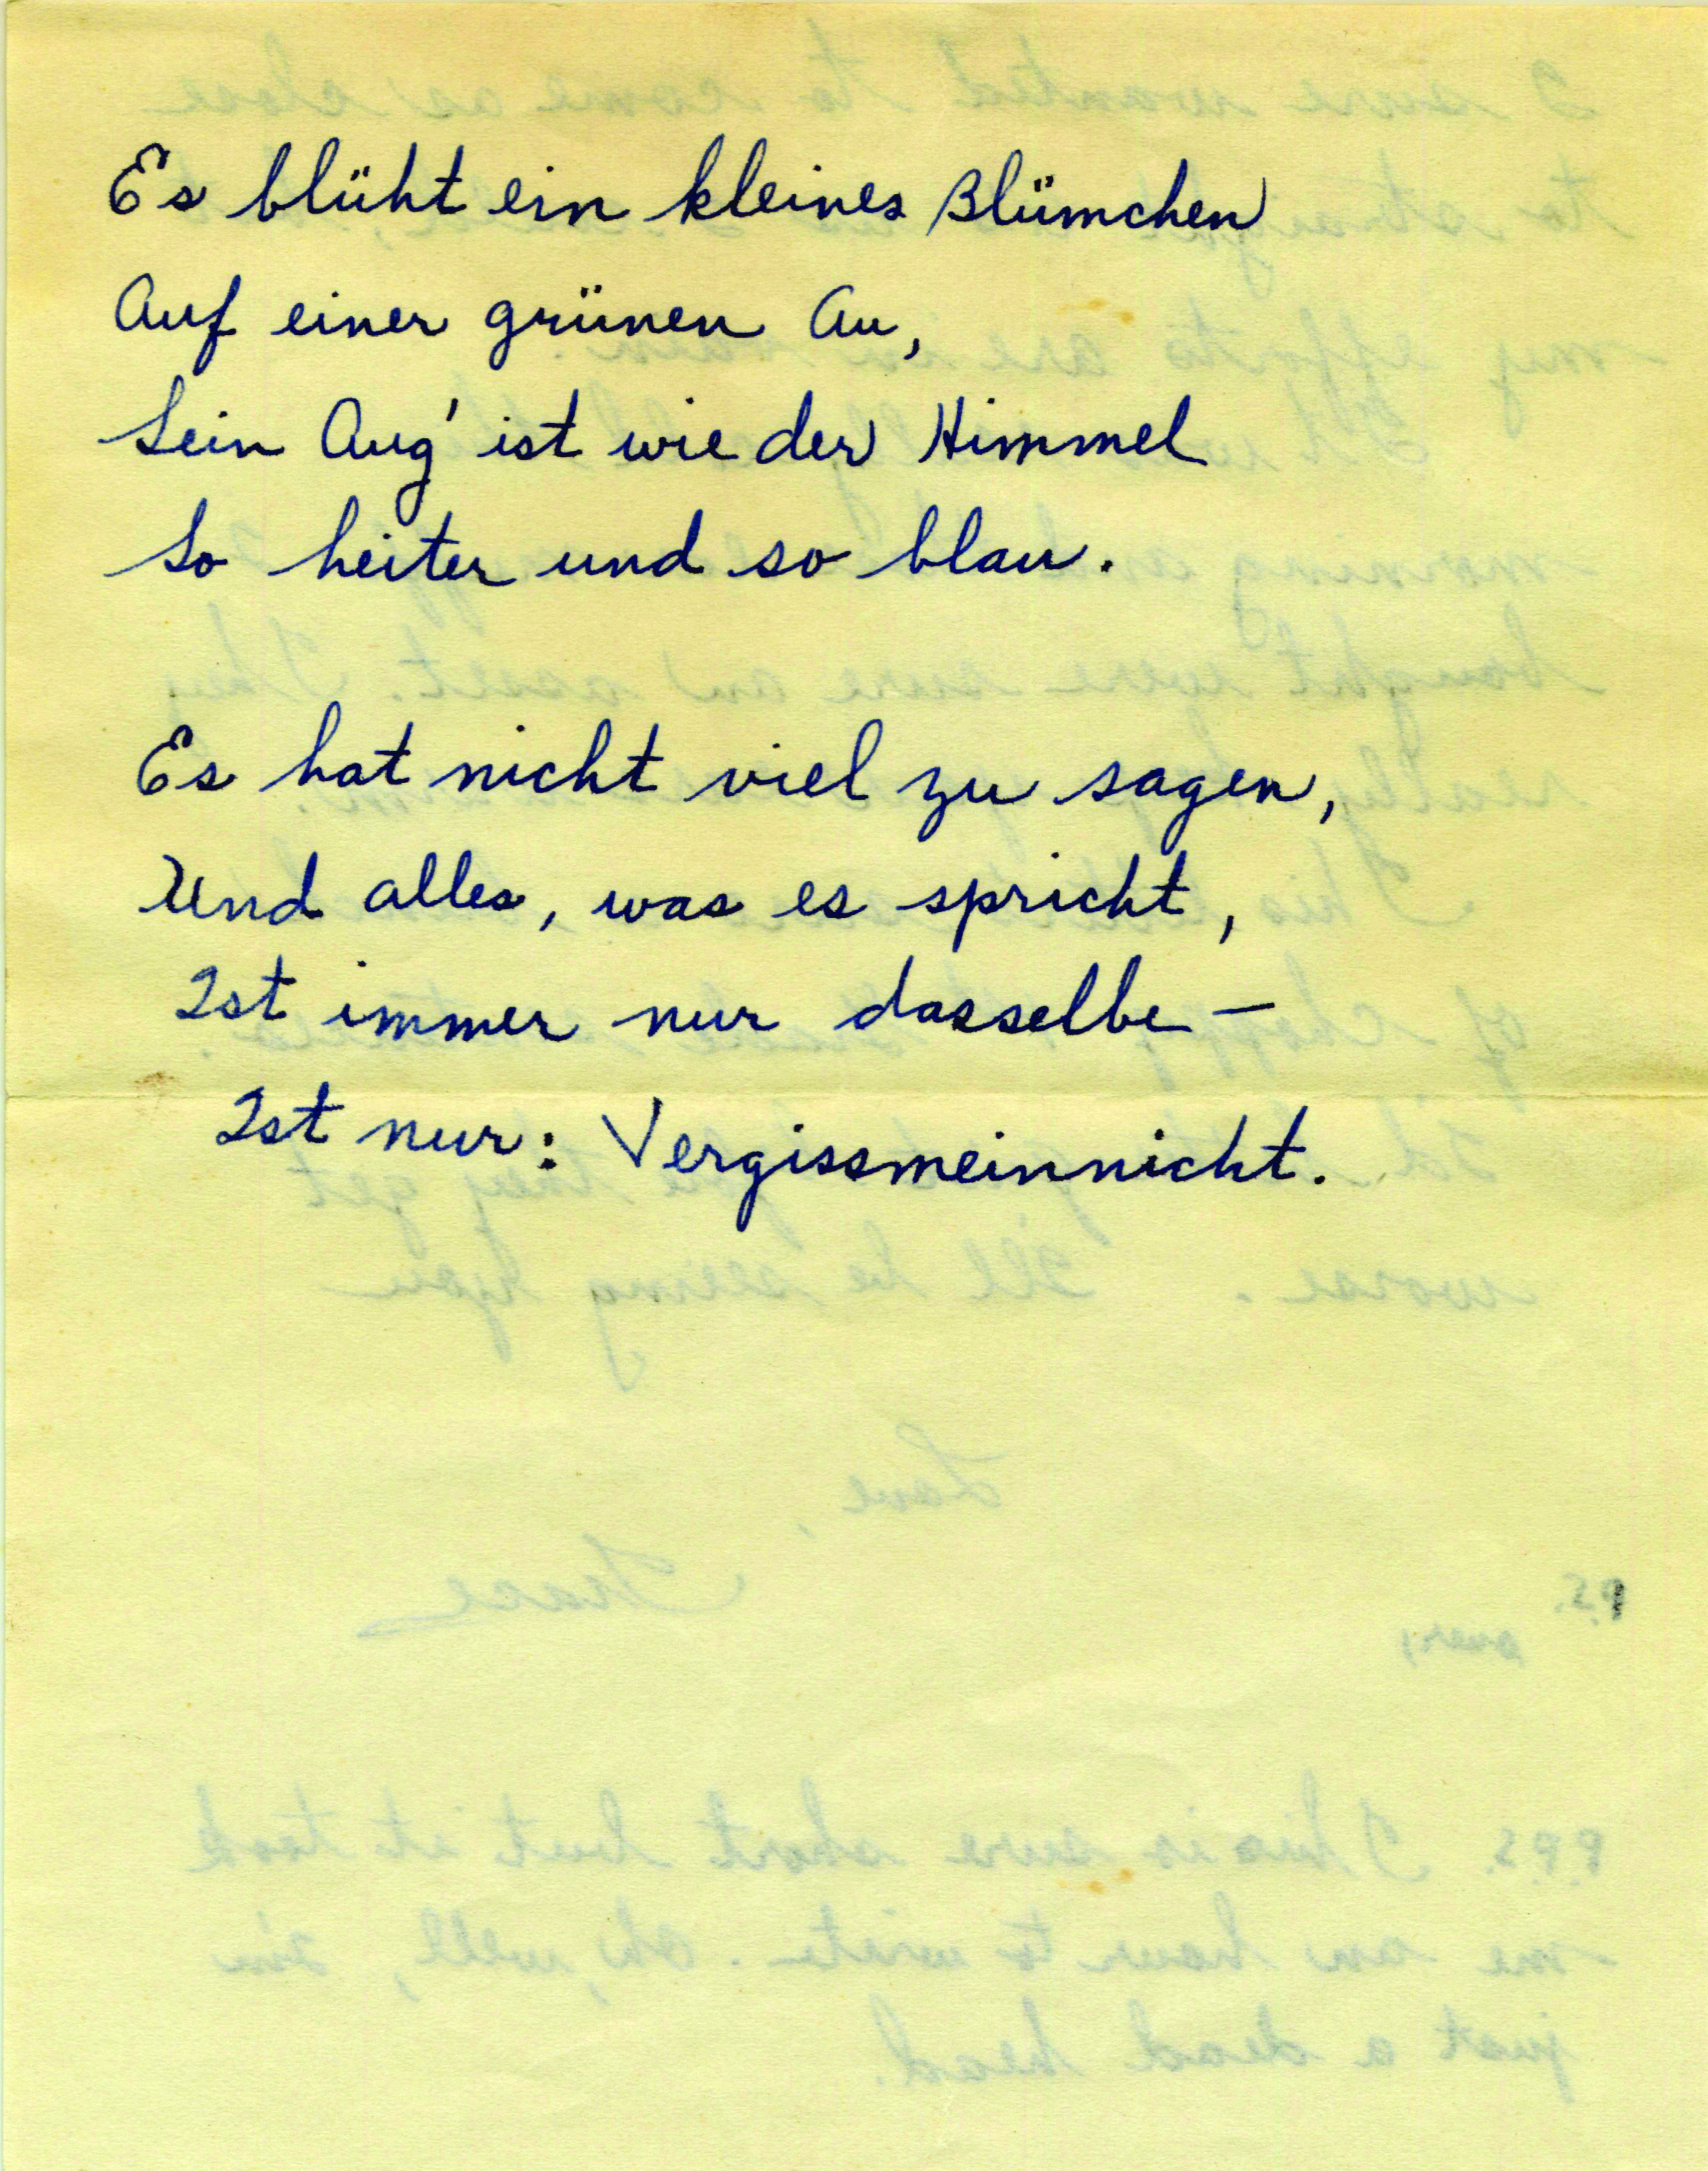 Es blüht ein kleines Blümchen
Auf einer grünen Au,
Sein Aug' ist wie der Himmel
So heiter und so blau.
Es hat nicht viel zu sagen,
Und alles, was es spricht,
Ist immer nur dasselbe –
Ist nur: Vergissmeinnicht.